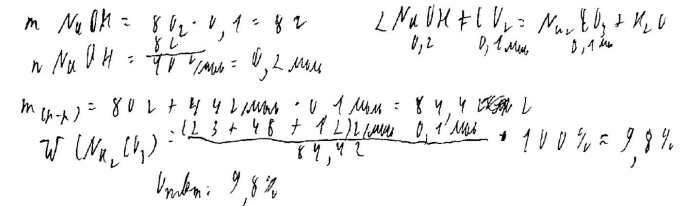 m NaOH = 80г · 0,1 = 8г
2NaOH + CO₂ = Na₂CO₃ + H₂O
0,2 0,1 моль 0,1 м
n NaOH = 8г / 40 г/моль = 0,2 моль
m(р-р) = 80г + 44г/моль · 0,1 моль = 84,4 г
W(Na₂CO₃) = (23 + 48 + 12)г/моль 0,1 моль / 84,4г · 100% = 9,8%
Ответ: 9,8%